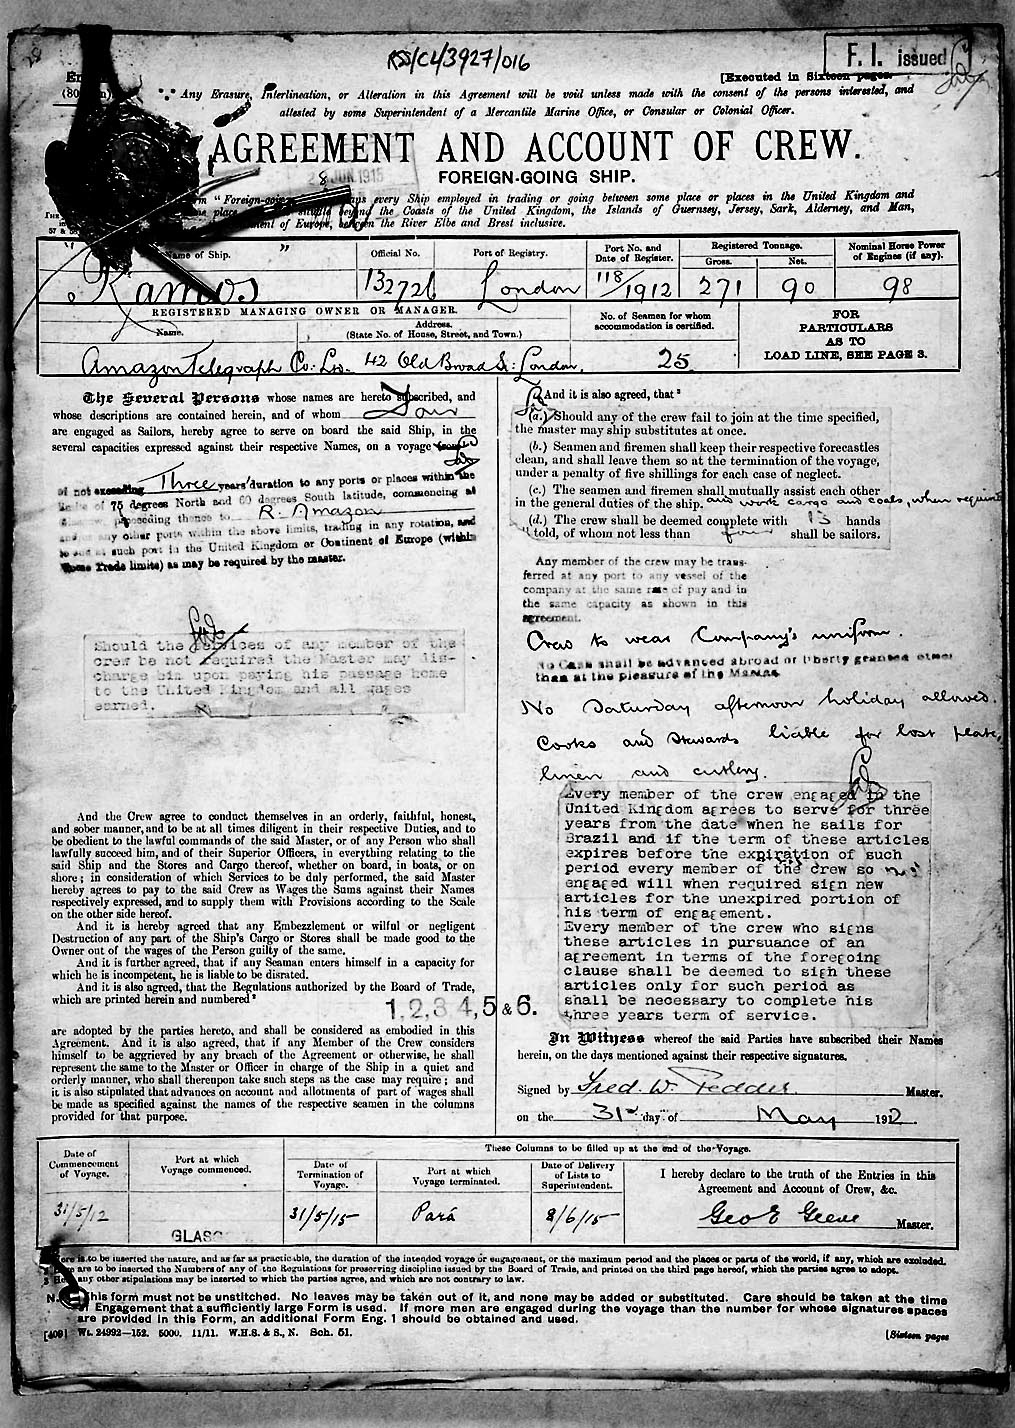 RSS/CL/3927/016
F. I. issued
[Executed in Sixteen pages.
Any Erasure, Interlineation, or Alteration in this Agreement will be void unless made with the consent of the persons interested, and
attested by some Superintendent of a Mercantile Marine Office, or Consular or Colonial Officer.
AGREEMENT AND ACCOUNT OF CREW.
FOREIGN-GOING SHIP.
8 JUN 1915
every Ship employed in trading or going between some place or places in the United Kingdom and
the Coasts of the United Kingdom, the Islands of Guernsey, Jersey, Sark, Alderney, and Man,
of Europe, between the River Elbe and Brest inclusive.
Name of Ship. Official No. Port of Registry. Port No. and Date of Register. Registered Tonnage. Gross. Net. Nominal Horse Power of Engines (if any).
"Ramos" 132726 London 118/1912 271 90 98
REGISTERED MANAGING OWNER OR MANAGER.
Name. Address. (State No. of House, Street, and Town.) No. of Seamen for whom accommodation is certified.
FOR PARTICULARS AS TO LOAD LINE, SEE PAGE 3.
Amazon Telegraph Co. Ld. 42 Old Broad St. London. 25
The Several Persons whose names are hereto subscribed, and
whose descriptions are contained herein, and of whom Four
are engaged as Sailors, hereby agree to serve on board the said Ship, in the
several capacities expressed against their respective Names, on a voyage from
of not exceeding Three years' duration to any ports or places within the
limits of 75 degrees North and 60 degrees South latitude, commencing at
proceeding thence to R. Amazon
and/or any other ports within the above limits, trading in any rotation, and
to end at such port in the United Kingdom or Continent of Europe (within
Home Trade limits) as may be required by the master.
Should the services of any member of the
crew be not required the Master may dis-
charge him upon paying his passage home
to the United Kingdom and all wages
earned.
And the Crew agree to conduct themselves in an orderly, faithful, honest,
and sober manner, and to be at all times diligent in their respective Duties, and to
be obedient to the lawful commands of the said Master, or of any Person who shall
lawfully succeed him, and of their Superior Officers, in everything relating to the
said Ship and the Stores and Cargo thereof, whether on board, in boats, or on
shore; in consideration of which Services to be duly performed, the said Master
hereby agrees to pay to the said Crew as Wages the Sums against their Names
respectively expressed, and to supply them with Provisions according to the Scale
on the other side hereof.
And it is hereby agreed that any Embezzlement or wilful or negligent
Destruction of any part of the Ship's Cargo or Stores shall be made good to the
Owner out of the wages of the Person guilty of the same.
And it is further agreed, that if any Seaman enters himself in a capacity for
which he is incompetent, he is liable to be disrated.
And it is also agreed, that the Regulations authorized by the Board of Trade,
which are printed herein and numbered²
1, 2, 3, 4, 5 & 6.
are adopted by the parties hereto, and shall be considered as embodied in this
Agreement. And it is also agreed, that if any Member of the Crew considers
himself to be aggrieved by any breach of the Agreement or otherwise, he shall
represent the same to the Master or Officer in charge of the Ship in a quiet and
orderly manner, who shall thereupon take such steps as the case may require; and
it is also stipulated that advances on account and allotments of part of wages shall
be made as specified against the names of the respective seamen in the columns
provided for that purpose.
And it is also agreed, that ³
(a.) Should any of the crew fail to join at the time specified,
the master may ship substitutes at once.
(b.) Seamen and firemen shall keep their respective forecastles
clean, and shall leave them so at the termination of the voyage,
under a penalty of five shillings for each case of neglect.
(c.) The seamen and firemen shall mutually assist each other
in the general duties of the ship. and work cargo and coals, when required
(d.) The crew shall be deemed complete with 13 hands
all told, of whom not less than four shall be sailors.
Any member of the crew may be trans-
ferred at any port to any vessel of the
company at the same rate of pay and in
the same capacity as shown in this
agreement.
Crew to wear Company's uniform.
No Cash shall be advanced abroad or liberty granted other
than at the pleasure of the Master.
No Saturday afternoon holiday allowed.
Cooks and Stewards liable for lost plate,
linen and cutlery.
Every member of the crew engaged in the
United Kingdom agrees to serve for three
years from the date when he sails for
Brazil and if the term of these articles
expires before the expiration of such
period every member of the crew so
engaged will when required sign new
articles for the unexpired portion of
his term of engagement.
Every member of the crew who signs
these articles in pursuance of an
agreement in terms of the foregoing
clause shall be deemed to sigh these
articles only for such period as
shall be necessary to complete his
three years term of service.
In Witness whereof the said Parties have subscribed their Names
herein, on the days mentioned against their respective signatures.
Signed by Fred. W. Pedder Master.
on the 31st day of May 1912
These Columns to be filled up at the end of the Voyage.
Date of Commencement of Voyage. Port at which Voyage commenced. Date of Termination of Voyage. Port at which Voyage terminated. Date of Delivery of Lists to Superintendent. I hereby declare to the truth of the Entries in this Agreement and Account of Crew, &c.
31/5/12 GLASG 31/5/15 Pará 8/6/15 Geo E Geeve Master.
Here is to be inserted the nature, and as far as practicable, the duration of the intended voyage or engagement, or the maximum period and the places or parts of the world, if any, which are excluded.
Here are to be inserted the Numbers of any of the Regulations for preserving discipline issued by the Board of Trade, and printed on the third page hereof, which the parties agree to adopt.
3 Here any other stipulations may be inserted to which the parties agree, and which are not contrary to law.
N.B. This form must not be unstitched. No leaves may be taken out of it, and none may be added or substituted. Care should be taken at the time
of Engagement that a sufficiently large Form is used. If more men are engaged during the voyage than the number for whose signatures spaces
are provided in this Form, an additional Form Eng. 1 should be obtained and used.
[409] Wt. 24992—152. 5000. 11/11. W.H.S. & S., N. Sch. 51. [Sixteen pages